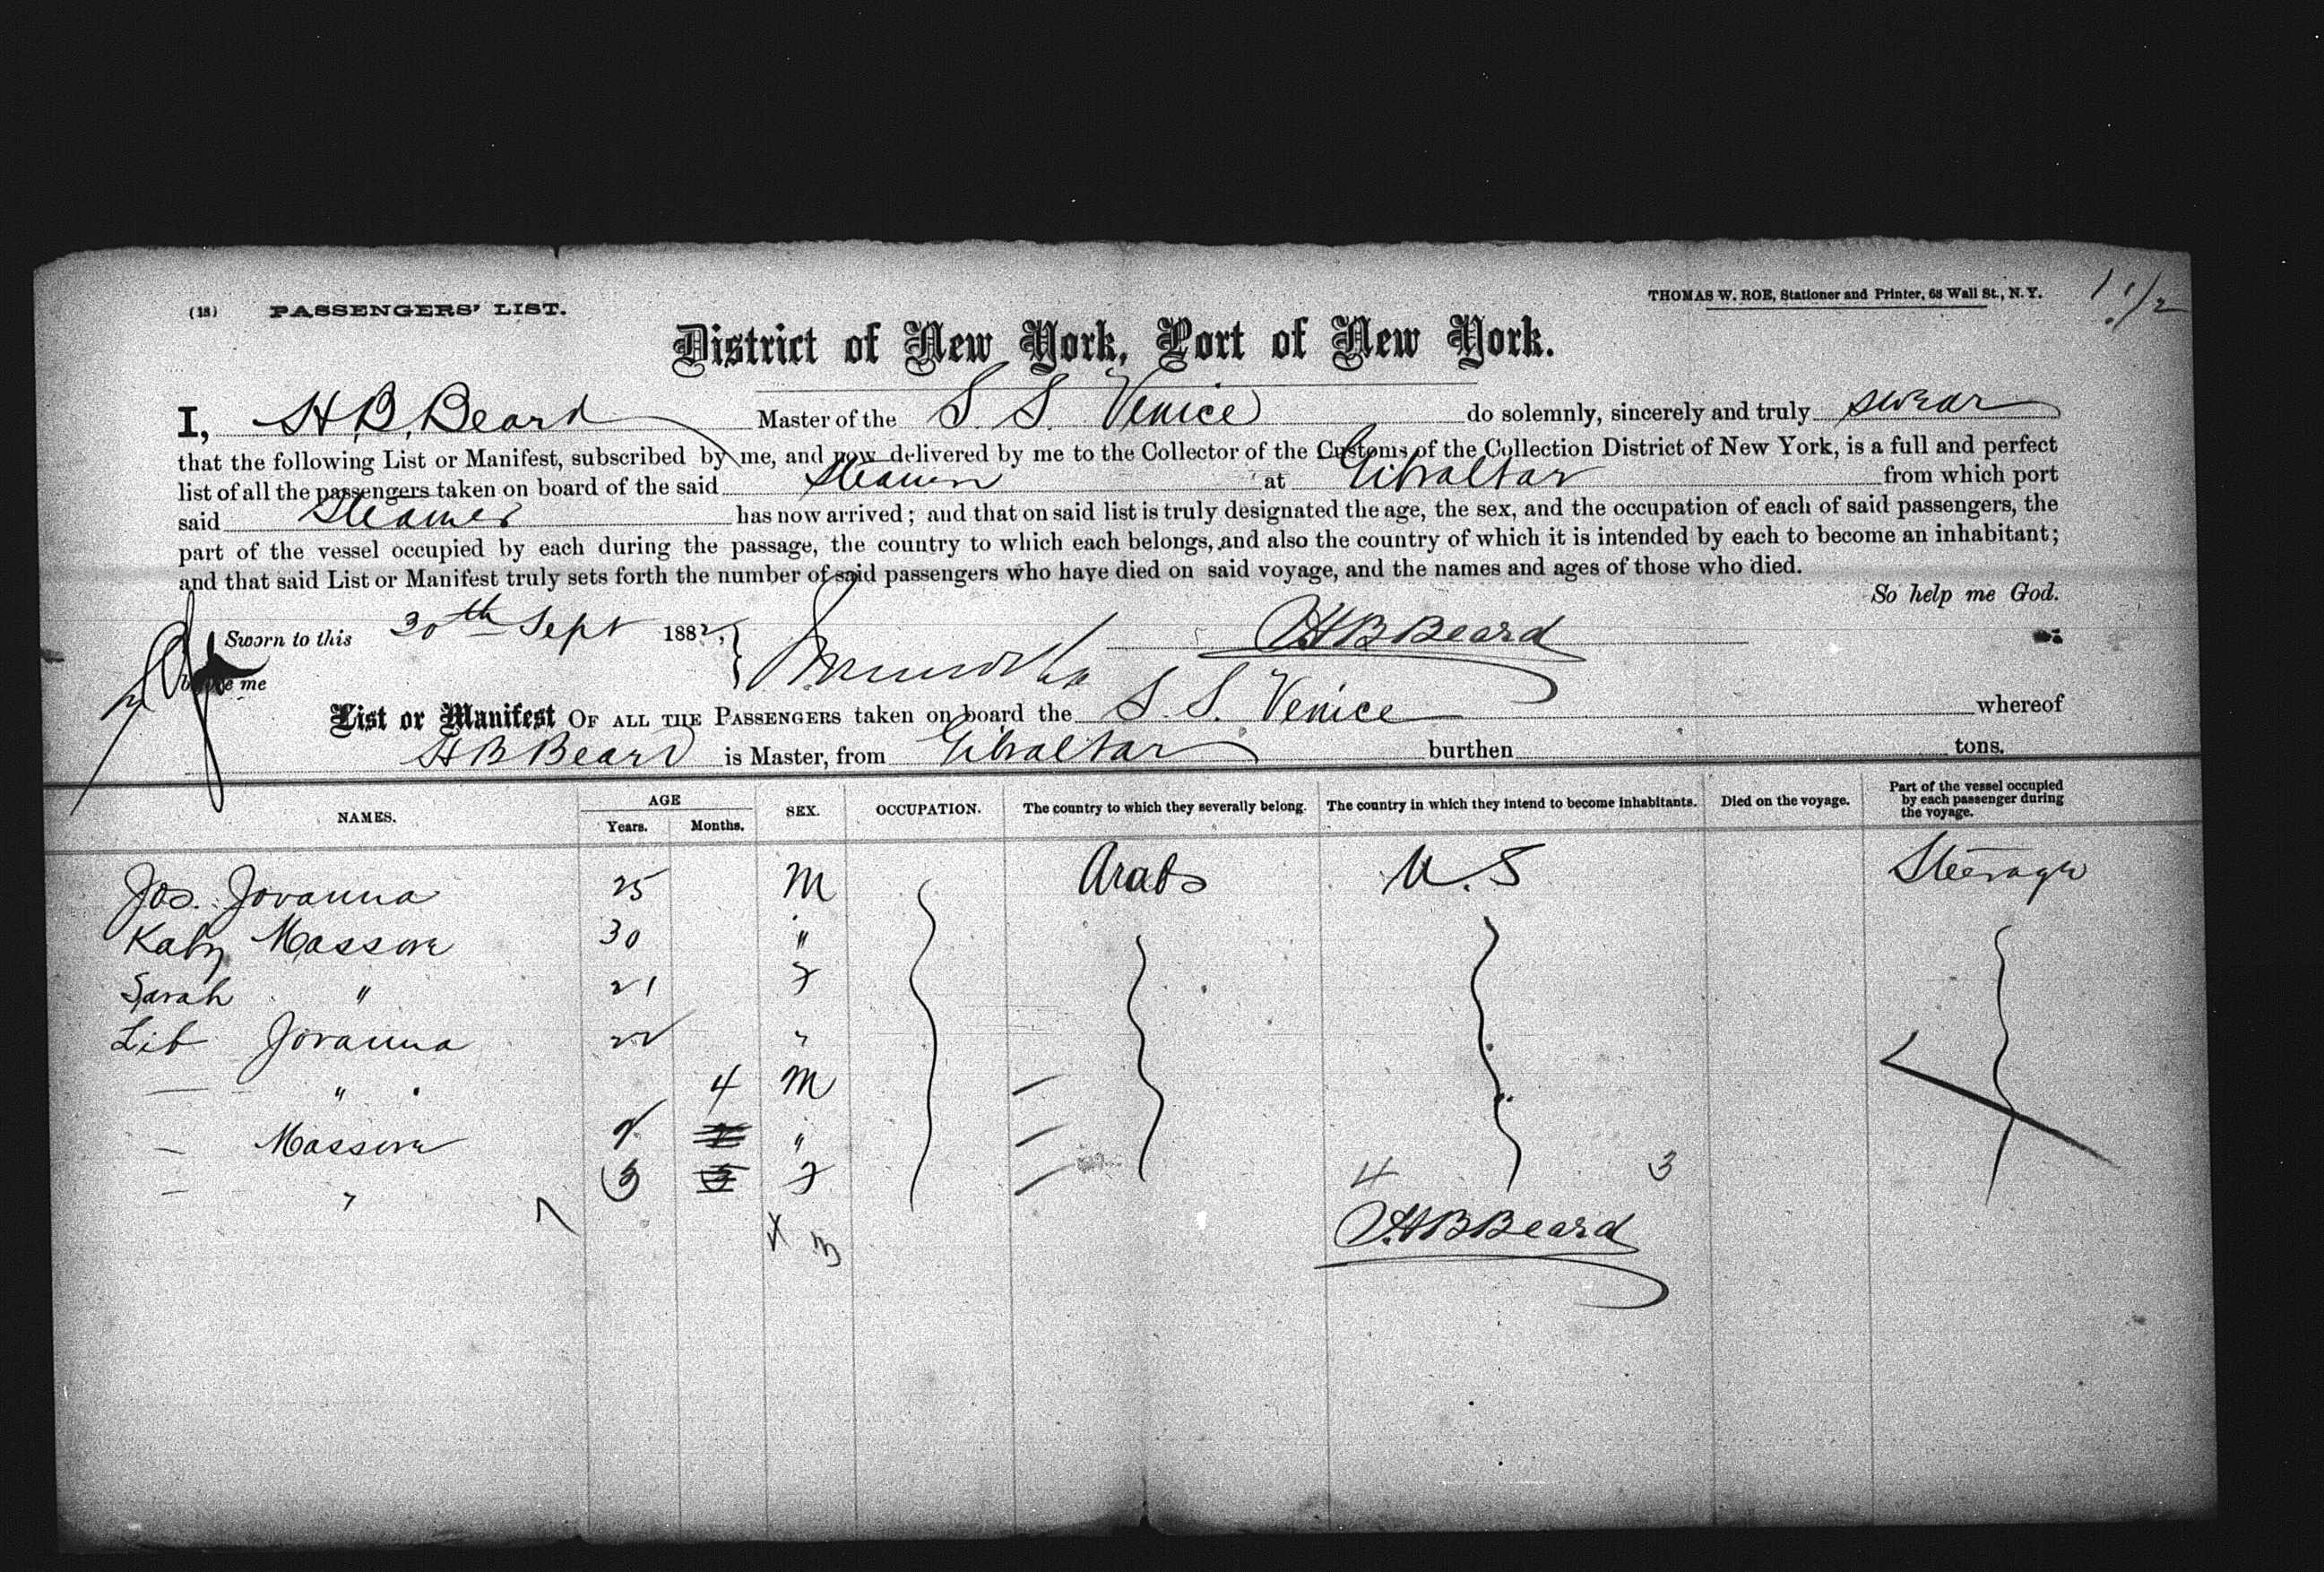 (18) PASSENGERS' LIST. THOMAS W. ROE, Stationer and Printer, 68 Wall St., N.Y.
District of New York, Port of New York.
I, H.B. Beard Master of the S.S. Venice do solemnly, sincerely and truly swear
that the following List or Manifest, subscribed by me, and now delivered by me to the Collector of the Customs of the Collection District of New York, is a full and perfect
list of all the passengers taken on board of the said Steamer at Gibraltar from which port
said Steamer has now arrived; and that on said list is truly designated the age, the sex, and the occupation of each of said passengers, the
part of the vessel occupied by each during the passage, the country to which each belongs, and also the country of which it is intended by each to become an inhabitant;
and that said List or Manifest truly sets forth the number of said passengers who have died on said voyage, and the names and ages of those who died.
So help me God.
Sworn to this 30th Sept 1882, H B Beard
before me
List or Manifest OF ALL THE PASSENGERS taken on board the S.S. Venice whereof
H B Beard is Master, from Gibraltar burthen tons.
NAMES. AGE Years. Months. SEX. OCCUPATION. The country to which they severally belong. The country in which they intend to become inhabitants. Died on the voyage. Part of the vessel occupied by each passenger during the voyage.
Jos. Jovanna 25 M Arabs U.S Steerage
Katy Massore 30 "
Sarah " 21 F
Lib Jovanna 22 "
— " 4 M
— Massore 2 "
— " 3 F
7 4 3
4 3
H B Beard